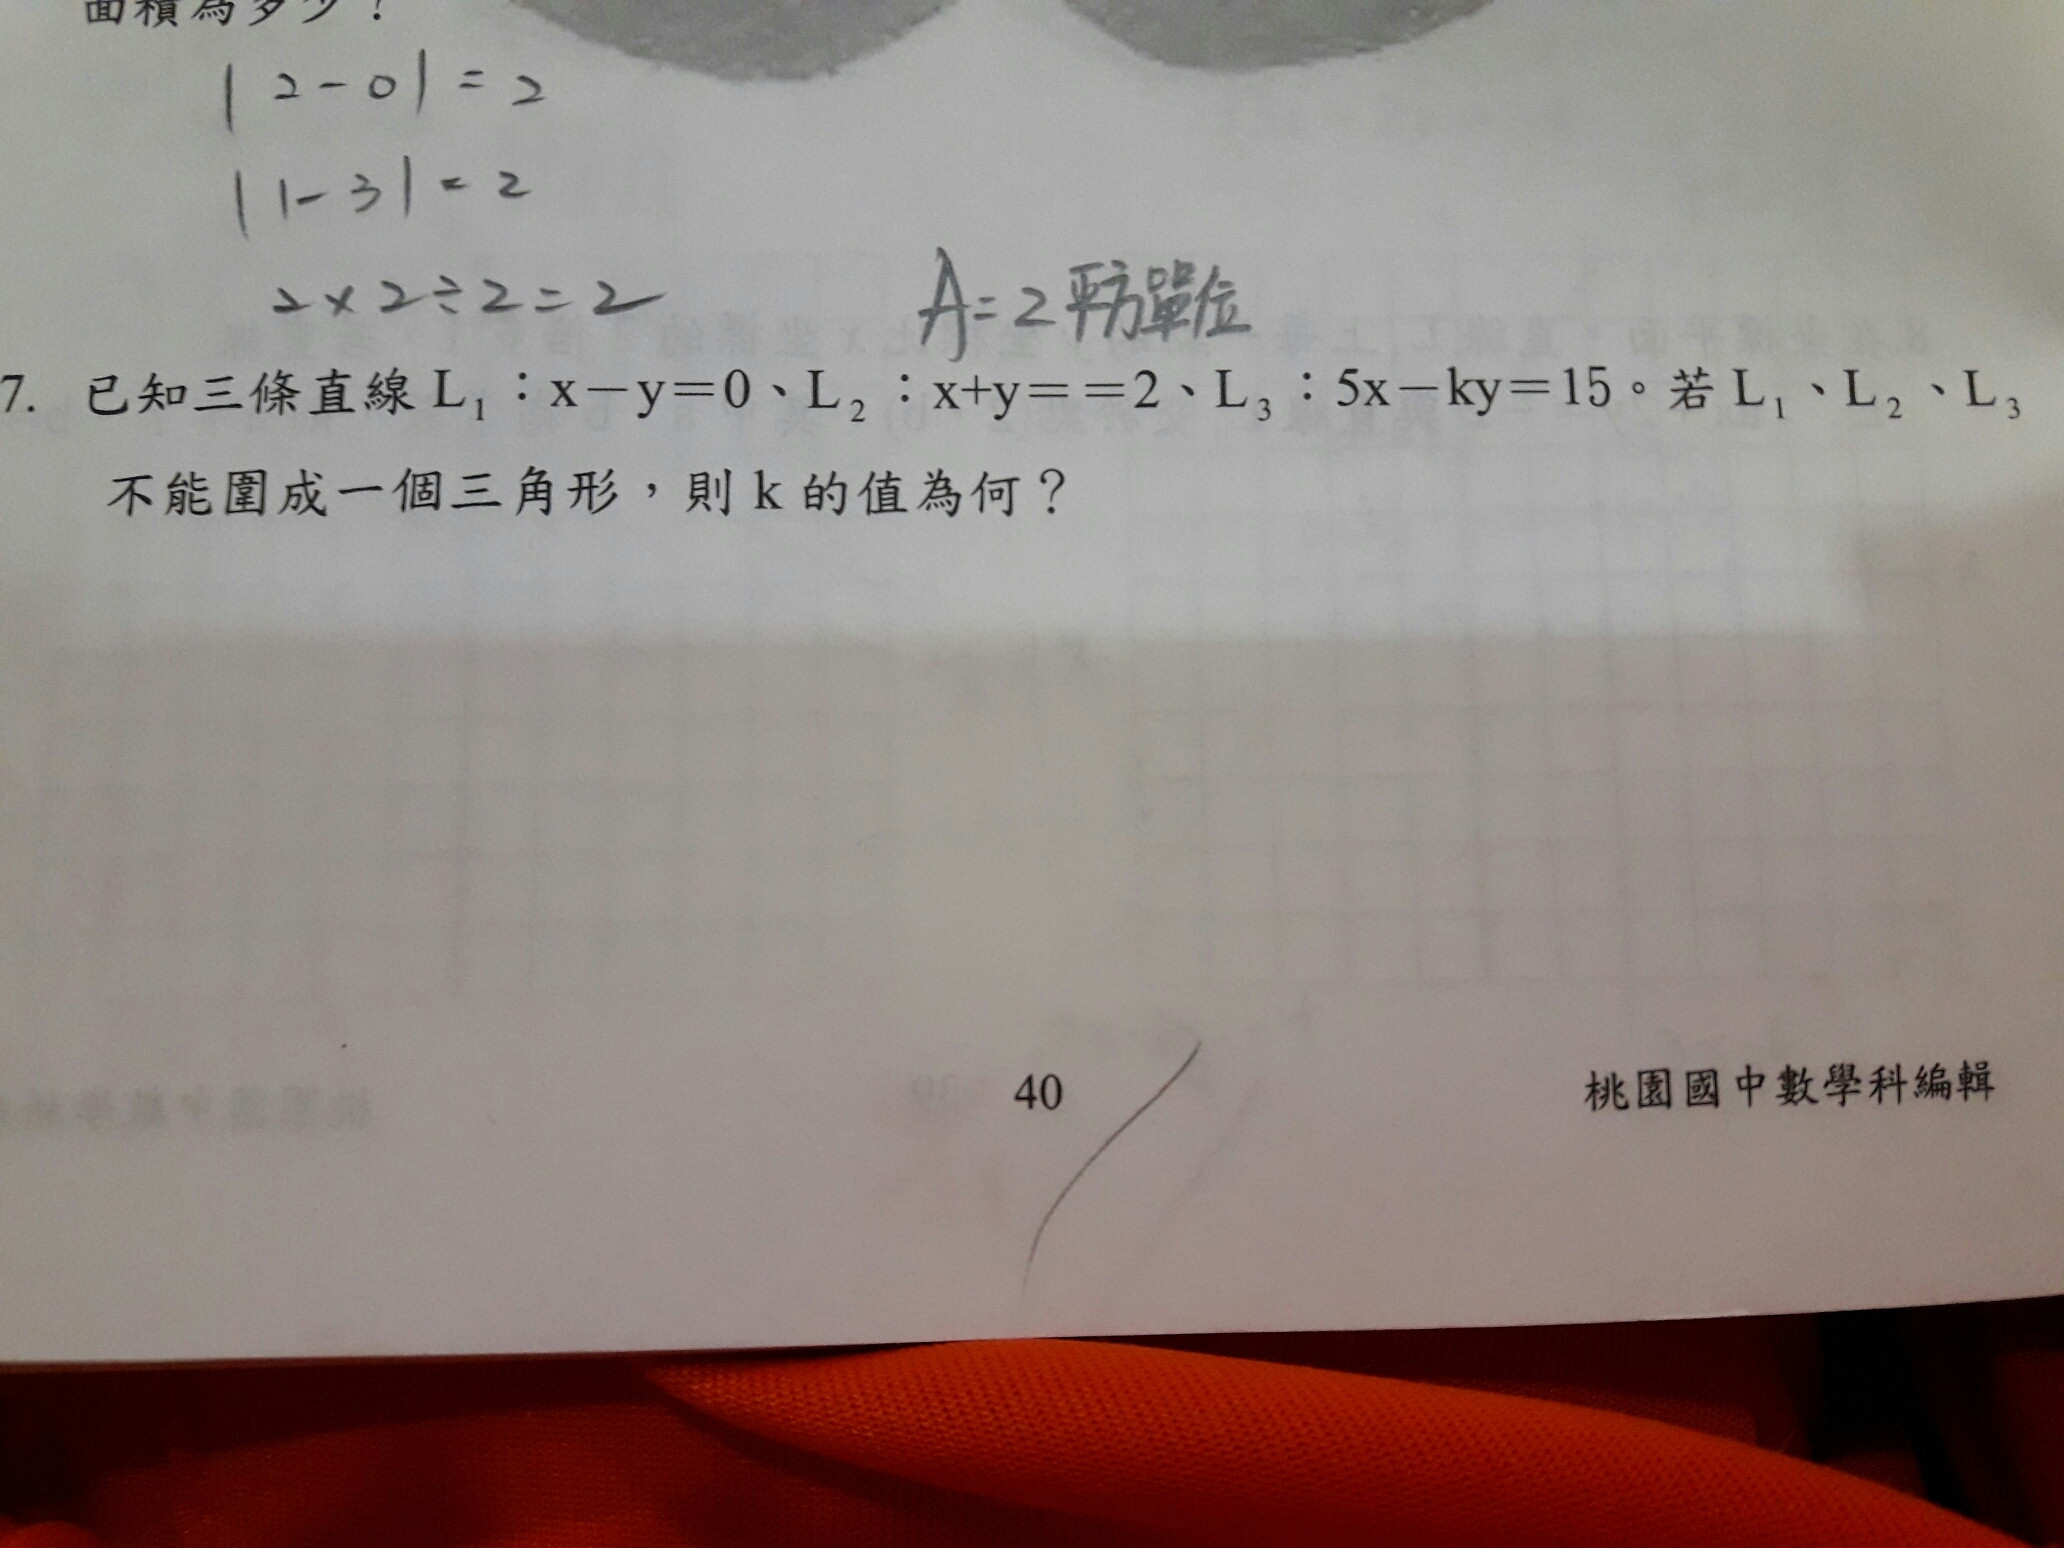 面積為多少？
| 2 - 0 | = 2
| 1 - 3 | = 2
2 × 2 ÷ 2 = 2
A = 2 平方單位
7. 已知三條直線 L₁：x－y＝0、L₂：x+y＝＝2、L₃：5x－ky＝15。若 L₁、L₂、L₃
不能圍成一個三角形，則 k 的值為何？
40
桃園國中數學科編輯